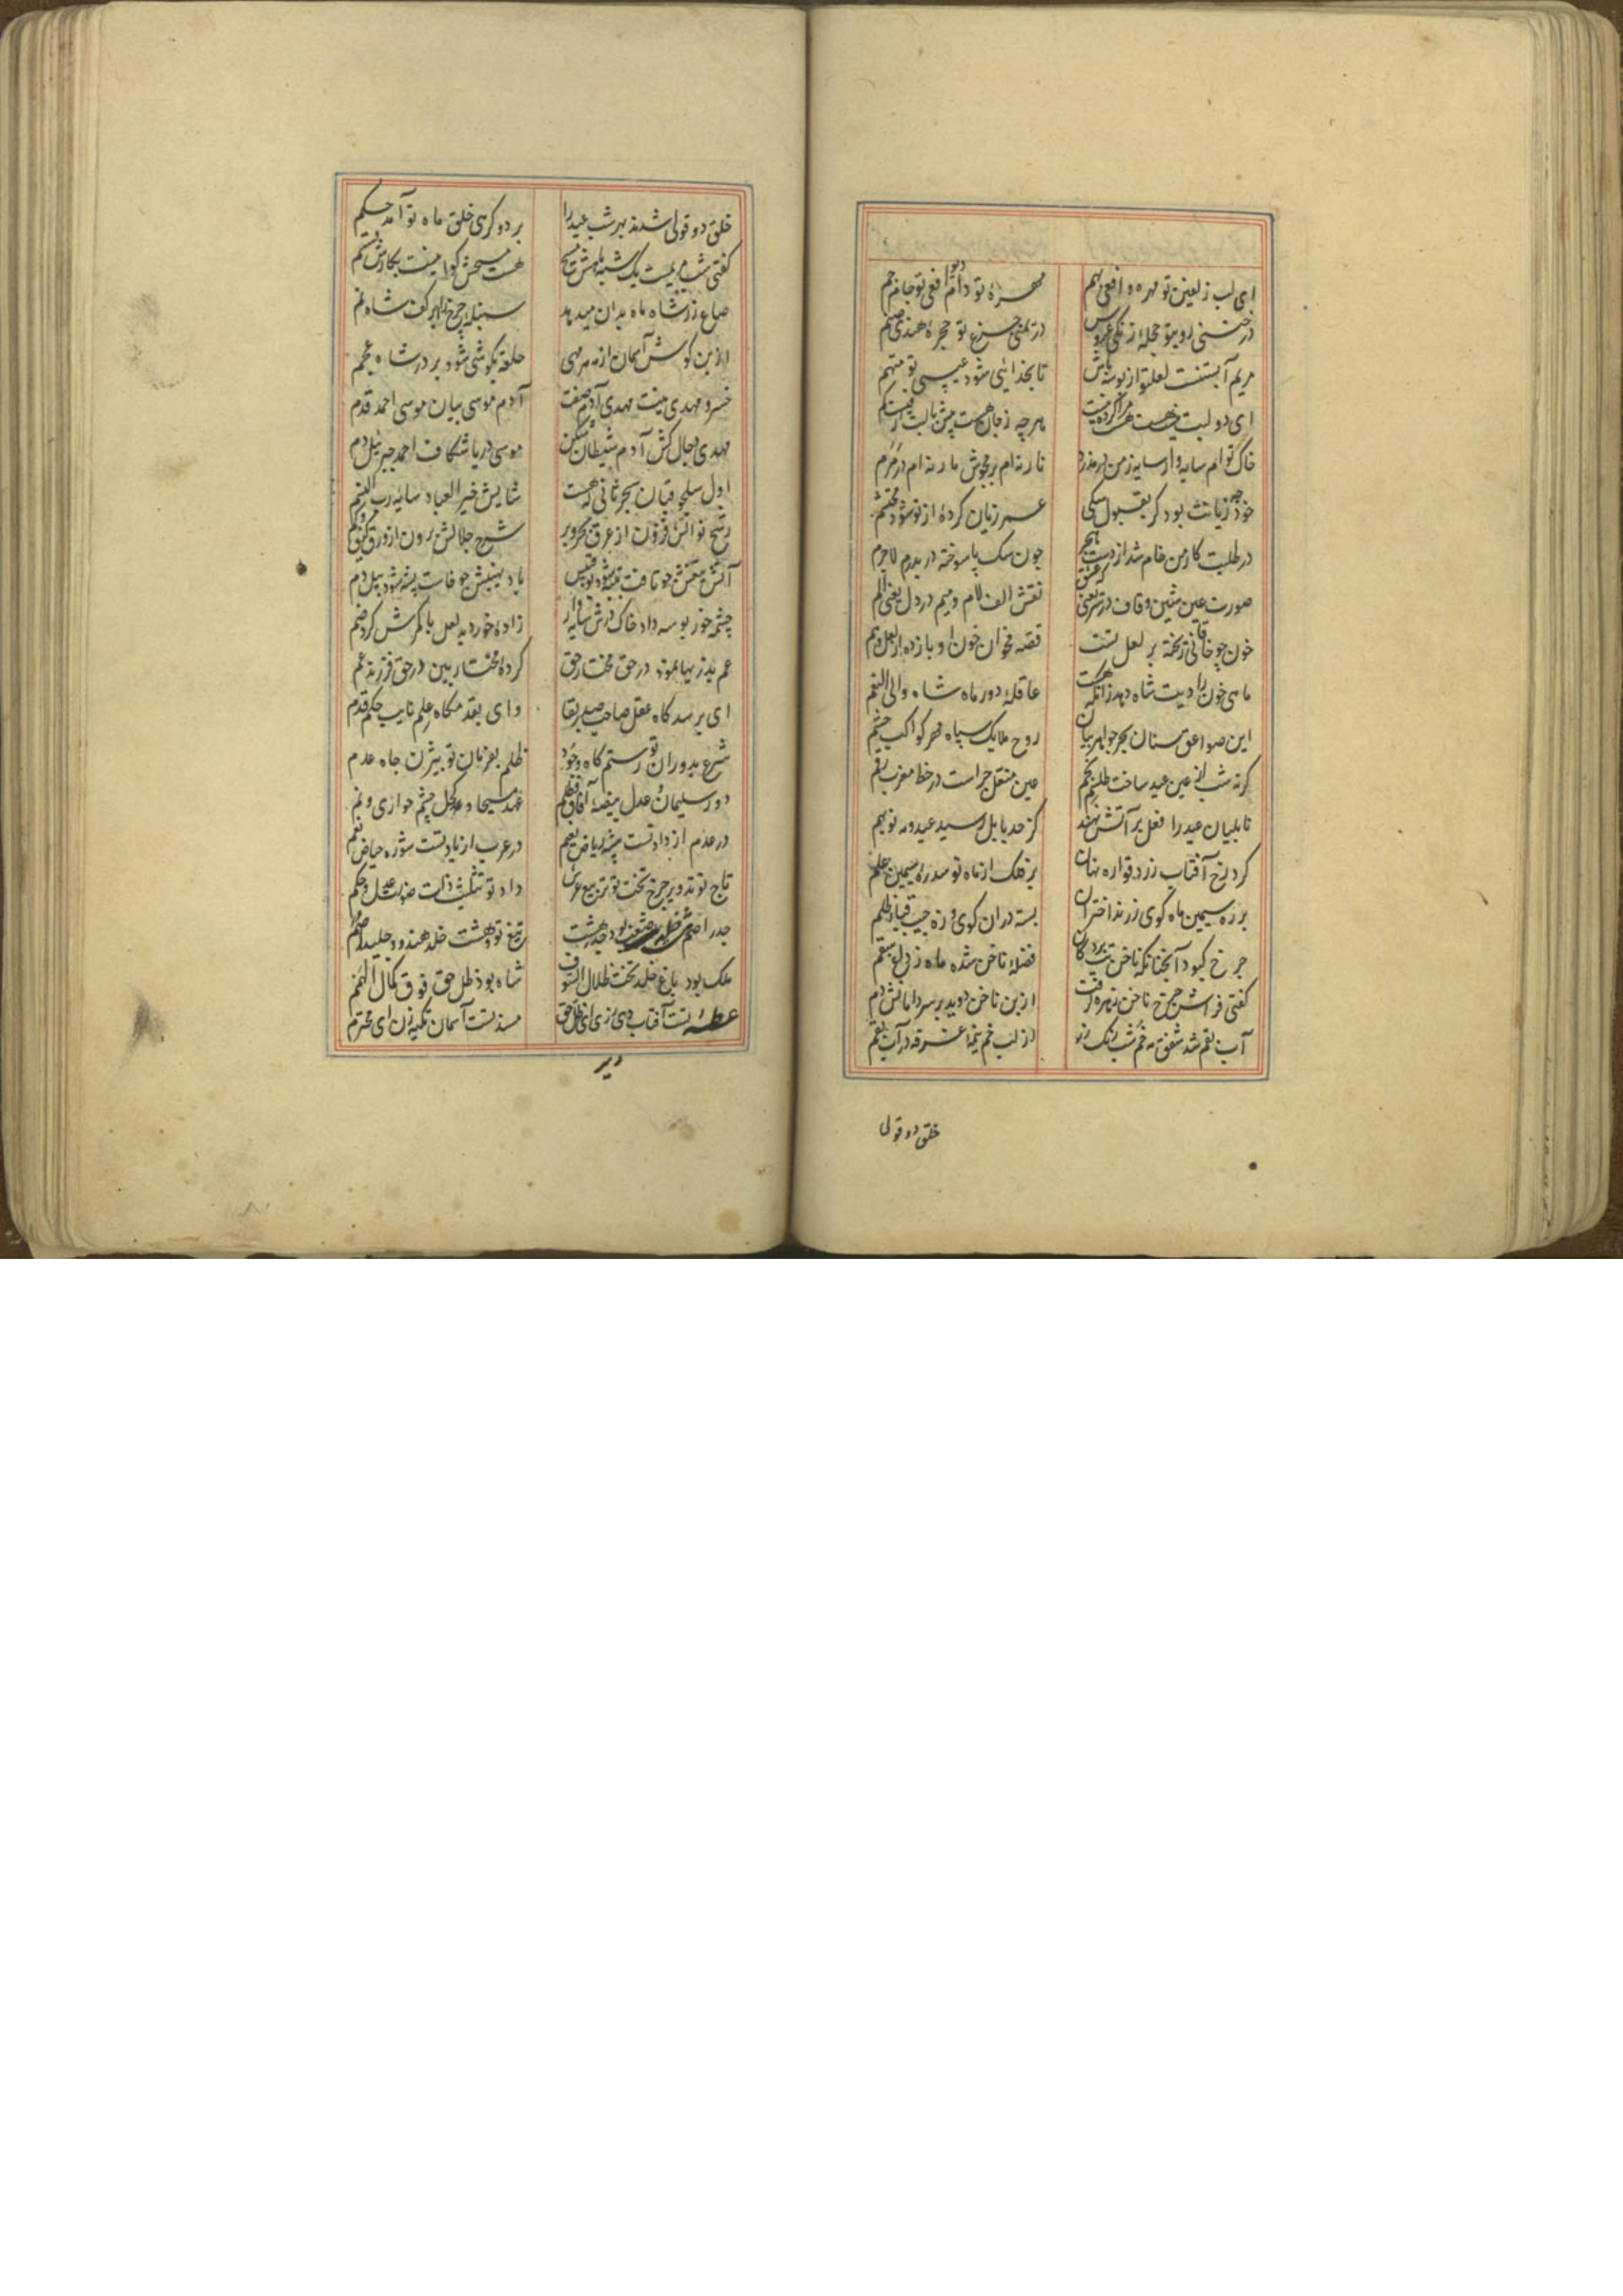 ای لب و زلفین تو مهره و افعی بهم مهره تو دام دیو افعی تو جام جم
در ختنی روی تو حجله زنگی عروس در یمنی جزع تو حجره هندی صنم
مریم آبستنست لعل تو از بوسه باش تا بخدایی شود عیسی تو متهم
ای دو لبت نیست هست هست مرا کرده نیست هر چه ز جان هست بیش با لبت از نیست کم
خاک توام سایه وار سایه ز من در مدزد نار نه‌ام بر مجوش مار نه‌ام در مرم
خود چه زیانت بود گر بقبول سگی عمر زیان کرده از تو شود محتشم
در طلبت کار من خام شد از دست هجر چون سگ پاسوخته دربدرم لاجرم
صورت عین شین و قاف در سر یعنی که عشق نقش الف لام و میم در دل یعنی الم
خون چو خاقانی ریخته بر لعل تست قصه مخوان خون او باز ده از لعل و فم
ماهی خون را دیت شاه دهد زانکه هست عاقله دور ماه شاه والی النعم
این صواعق سنان بحر جواهر بیان روح ملایک سپاه مهر کواکب حشم
گر نه شب از عین عید ساخت طلسمی بحکم عین منعل چراست در خط مغرب رقم
بابلیان عید را نعل بر آتش نهند کز حد بابل رسید عید و مه نو بهم
کرد رخ آفتاب زرد قواره نهان بر فلک از ماه نو شد زه سیمین علم
بر زه سیمین ماه گوی زرند اختران بسته در آن گوی و زه جیب قبای ظلم
چرخ کبود آنچنانکه ناخن تب بردگان فضله ناخن شده ماه ز داغ سقم
گفتی فراش چرخ ناخن زهره گرفت از بن ناخن دوید بر سر دامانش دم
آب بقم شد شفق مه خم شب رنگ رز از لب خم نیمه غرقه در آب بقم
خلق دو قولی
خلق دو قولی شدند بهر شب عید را بر دو گرهی خلق ماه نو آمد حکم
گفتی شب مریمیست یک شبه ماهش مسیح هست مسیحش گواه نیست بکارش قسم
صاع زر شاه ماه بدان میدهد سنبله چرخ را بهر کف شاه نم
از بن گوش آسمان از مه هر مهی حلقه بگوشی شود بر در شاه عجم
خسرو مهدی نیت مهدی آدم صفت آدم موسی بیان موسی احمد قدم
مهدی دجال کش آدم شیطان شکن موسی دریا شکاف احمد جبریل دم
اول سلجوقیان سنجر ثانی که هست سایش خیر العباد سایه رب النسم
رشح نوالش فزون از عرق بحر و بر شرح جلالش برون از ورق کیف و کم
آتش تیغش چو تافت پنبه شود بوقبیس باد نهیبش چو خاست پشه شود پیل دم
چشمه خور بوسه داد خاک درش سایه وار زاده خور دید لعل با کمرش کرد ضم
عم پدرزیها نمود در حق مختار حق کرده مختار بین در حق فرزند عم
ای برسدگاه عقل صاحب صدر بقا وای بقدمگاه علم نایب حکم قدم
شرع بدوران تو رستم گاه وجود ظلم بفرمان تو بیژن چاه عدم
دور سلیمان و عدل بیضه آفاق و ظلم عهد مسیحا و کحل چشم حواری و نم
در عدم از داد تست بیشه ریاض نعیم در عرب از یاد تست شوره حیاض نعم
تاج تو تدویر چرخ تخت تو تربیع عرش داد تو تثلیث ذات ضد عدل و حکم
جدر اصم هشت خلد بود جذر هشت تیغ تو و هشت خلد هندو و جلیدا صم
ملک بود باغ خلد تخت ظلال السیوف شاه بود ظل حق فوق کمال الهمم
عطسه تست آفتاب دیر زی ای ظل حق مسند تست آسمان تکیه زن ای محترم
دیر